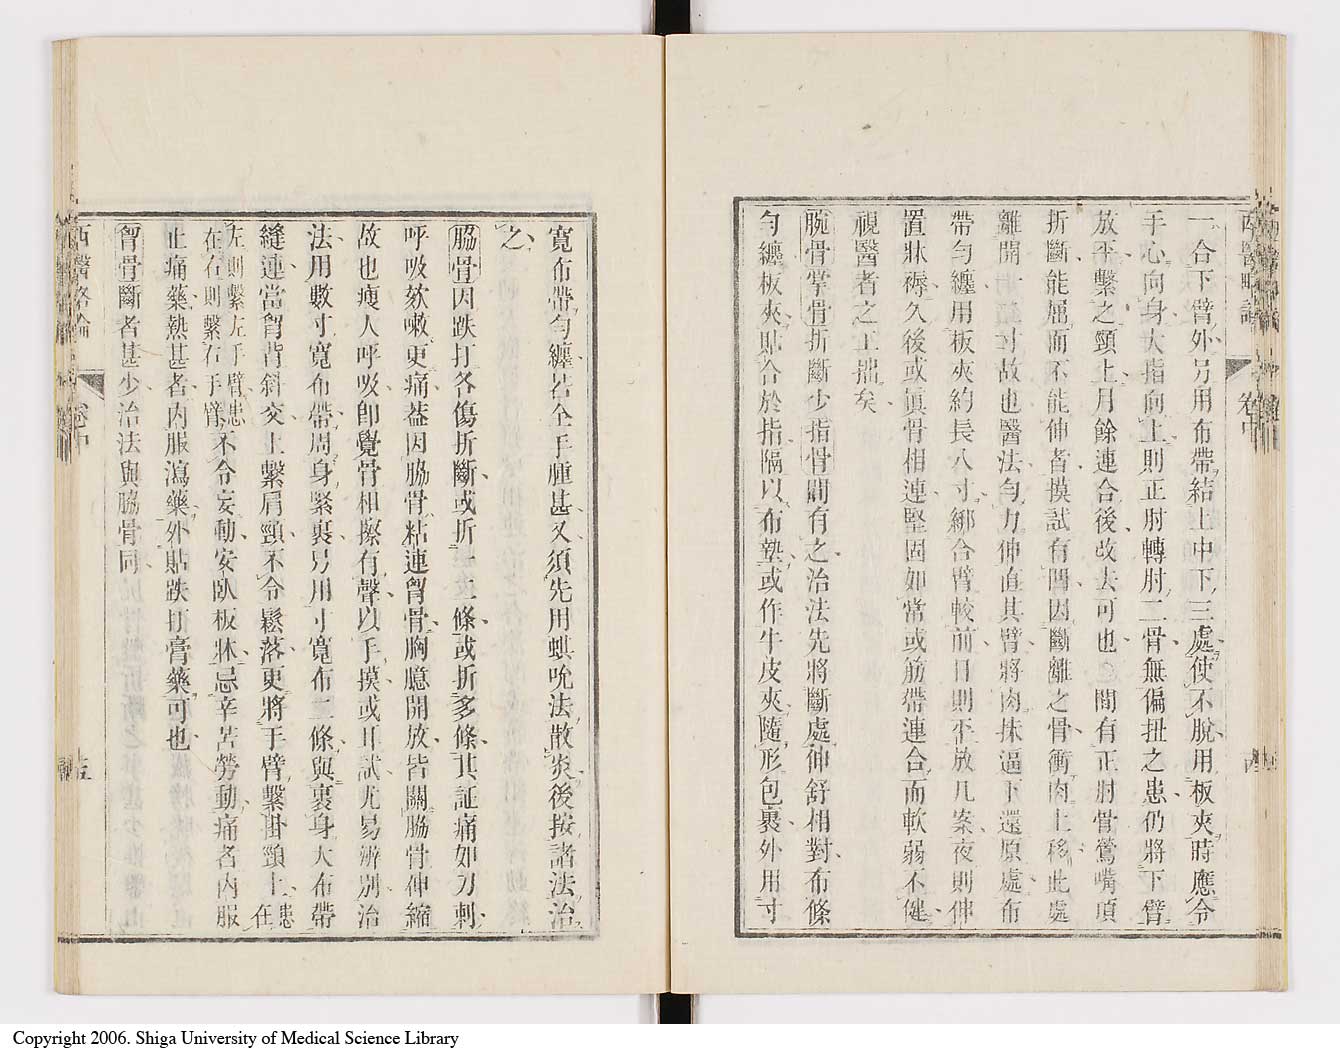 西醫略論
卷中
一合下臂外另用布帶結上中下三處使不脫用板夾時應令
手心向身大指向上則正肘轉肘二骨無偏扭之患仍將下臂
放平繫之頸上月餘連合後改去可也間有正肘骨鶯嘴項
折斷能屈而不能伸者摸試有凹因斷離之骨衝肉上移此處
離開一寸故也醫法勻力伸直其臂將肉抹逼下還原處布
帶勻纏用板夾約長八寸綁合臂較前日則平放几案夜則伸
置牀褥久後或眞骨相連堅固如常或筋帶連合而軟弱不健
視醫者之工拙矣
腕骨掌骨折斷少指骨間有之治法先將斷處伸舒相對布條
勻纏板夾貼合於指隔以布墊或作牛皮夾隨形包裹外用寸
寬布帶勻纏若全手腫甚又須先用蜞吮法散炎後按諸法治
之
脇骨因跌打各傷折斷或折一二條或折多條其証痛如刀刺
呼吸欬嗽更痛葢因脇骨粘連胷骨胸臆開放皆關脇骨伸縮
故也瘦人呼吸卽覺骨相擦有聲以手摸或耳試尤易辨別治
法用數寸寬布帶周身緊裹另用寸寬布二條與裹身大布帶
縫連當胷背斜交上繫肩頸不令鬆落更將手臂繫掛頸上患在
左則繫左手臂患在右則繫右手臂不令妄動安臥板牀忌辛苦勞動痛者內服
止痛藥熱甚者內服瀉藥外貼跌打膏藥可也
胷骨斷者甚少治法與脇骨同
西醫畧論
卷中
十五
Copyright 2006. Shiga University of Medical Science Library